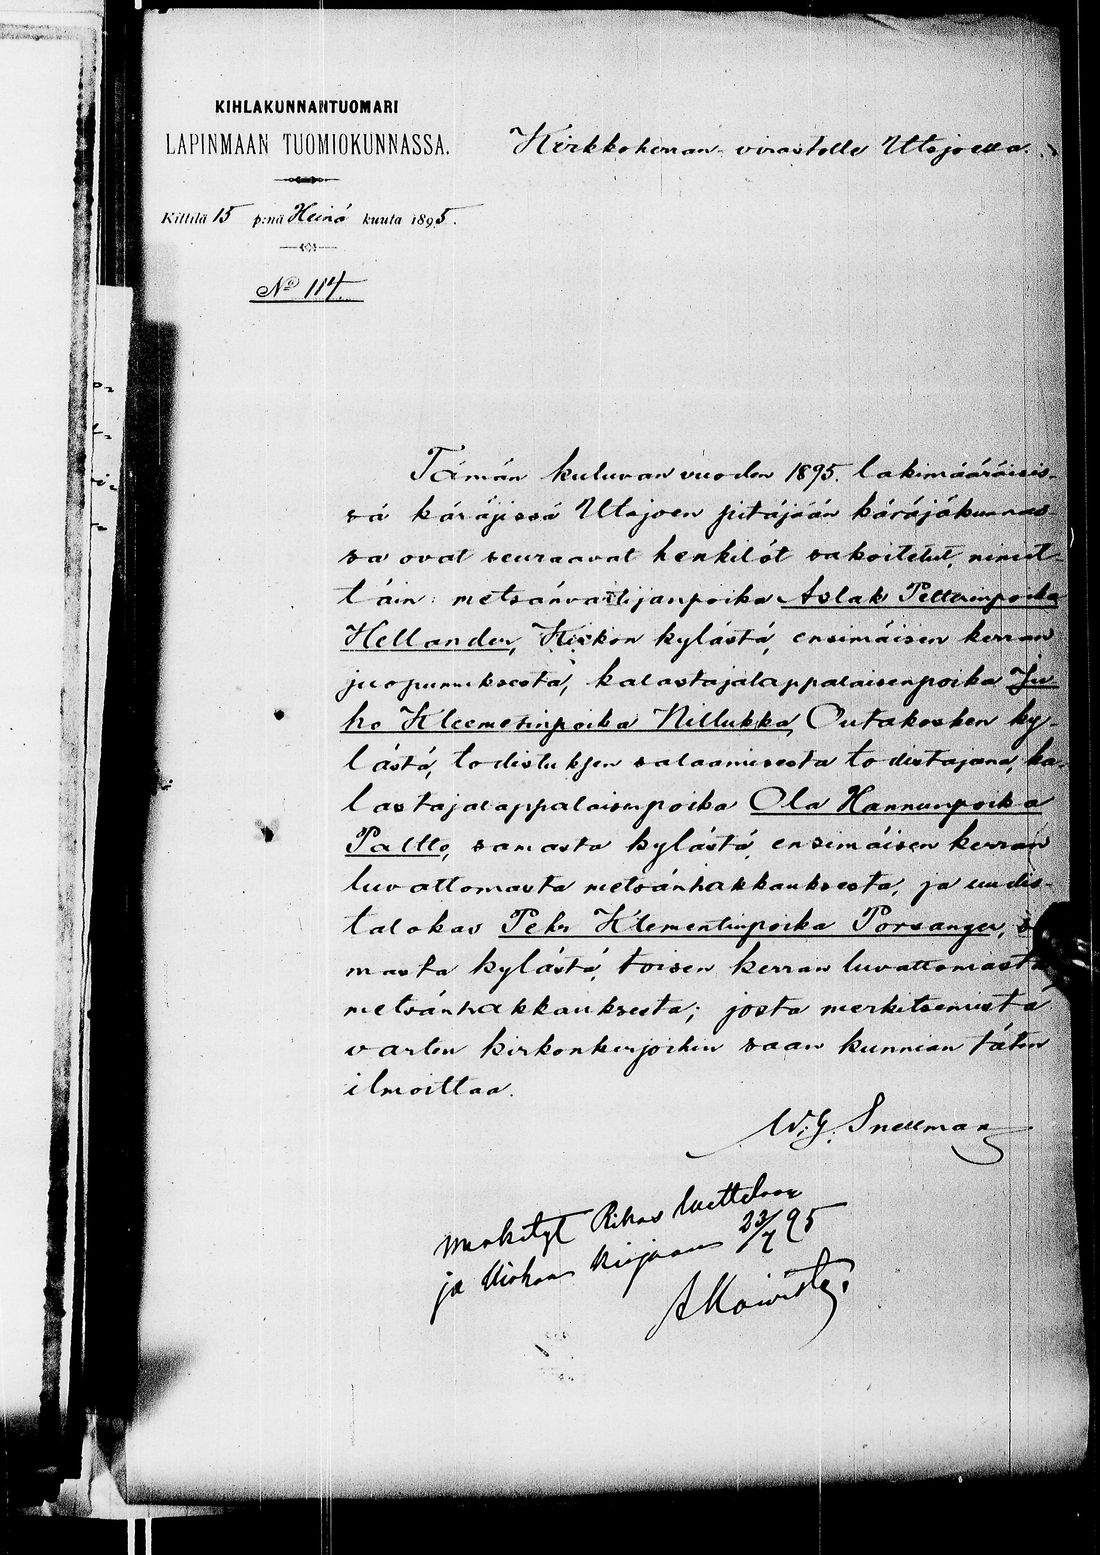 KIHLAKUNNANTUOMARI
LAPINMAAN TUOMIOKUNNASSA.
Kirkkoherran virastolle Utsjoella.
Kittilä 15 p:nä Heinä kuuta 1895.
No 114.
Tämän kuluvan vuoden 1895 lakimääräisis-
sä käräjissä Utsjoen pitäjään käräjäkunnas-
sa ovat seuraavat henkilöt sakoitetut, nimit-
täin: metsänvartijanpoika Aslak Petterinpoika
Hellander, Kirkon kylästä, ensimäisen kerran
juopumuksesta, kalastajalappalaisenpoika Ju-
ho Kleemetinpoika Nillukka, Outakosken ky-
lästä, todistuksen salaamisesta todistajana, ka-
lastajalappalaisenpoika Ola Hannunpoika
Paltto, samasta kylästä, ensimäisen kerran
luvattomasta metsänhakkauksesta, ja uudis-
talokas Pehr Klementinpoika Porsanger, sa
masta kylästä, toisen kerran luvattomasta
metsänhakkauksesta; josta merkitsemistä
varten kirkonkirjoihin saan kunnian täten
ilmoittaa.
W. G. Snellman
Merkityt Rikos luetteloon
ja kirkon kirjaan 22/7 95
A Koivisto